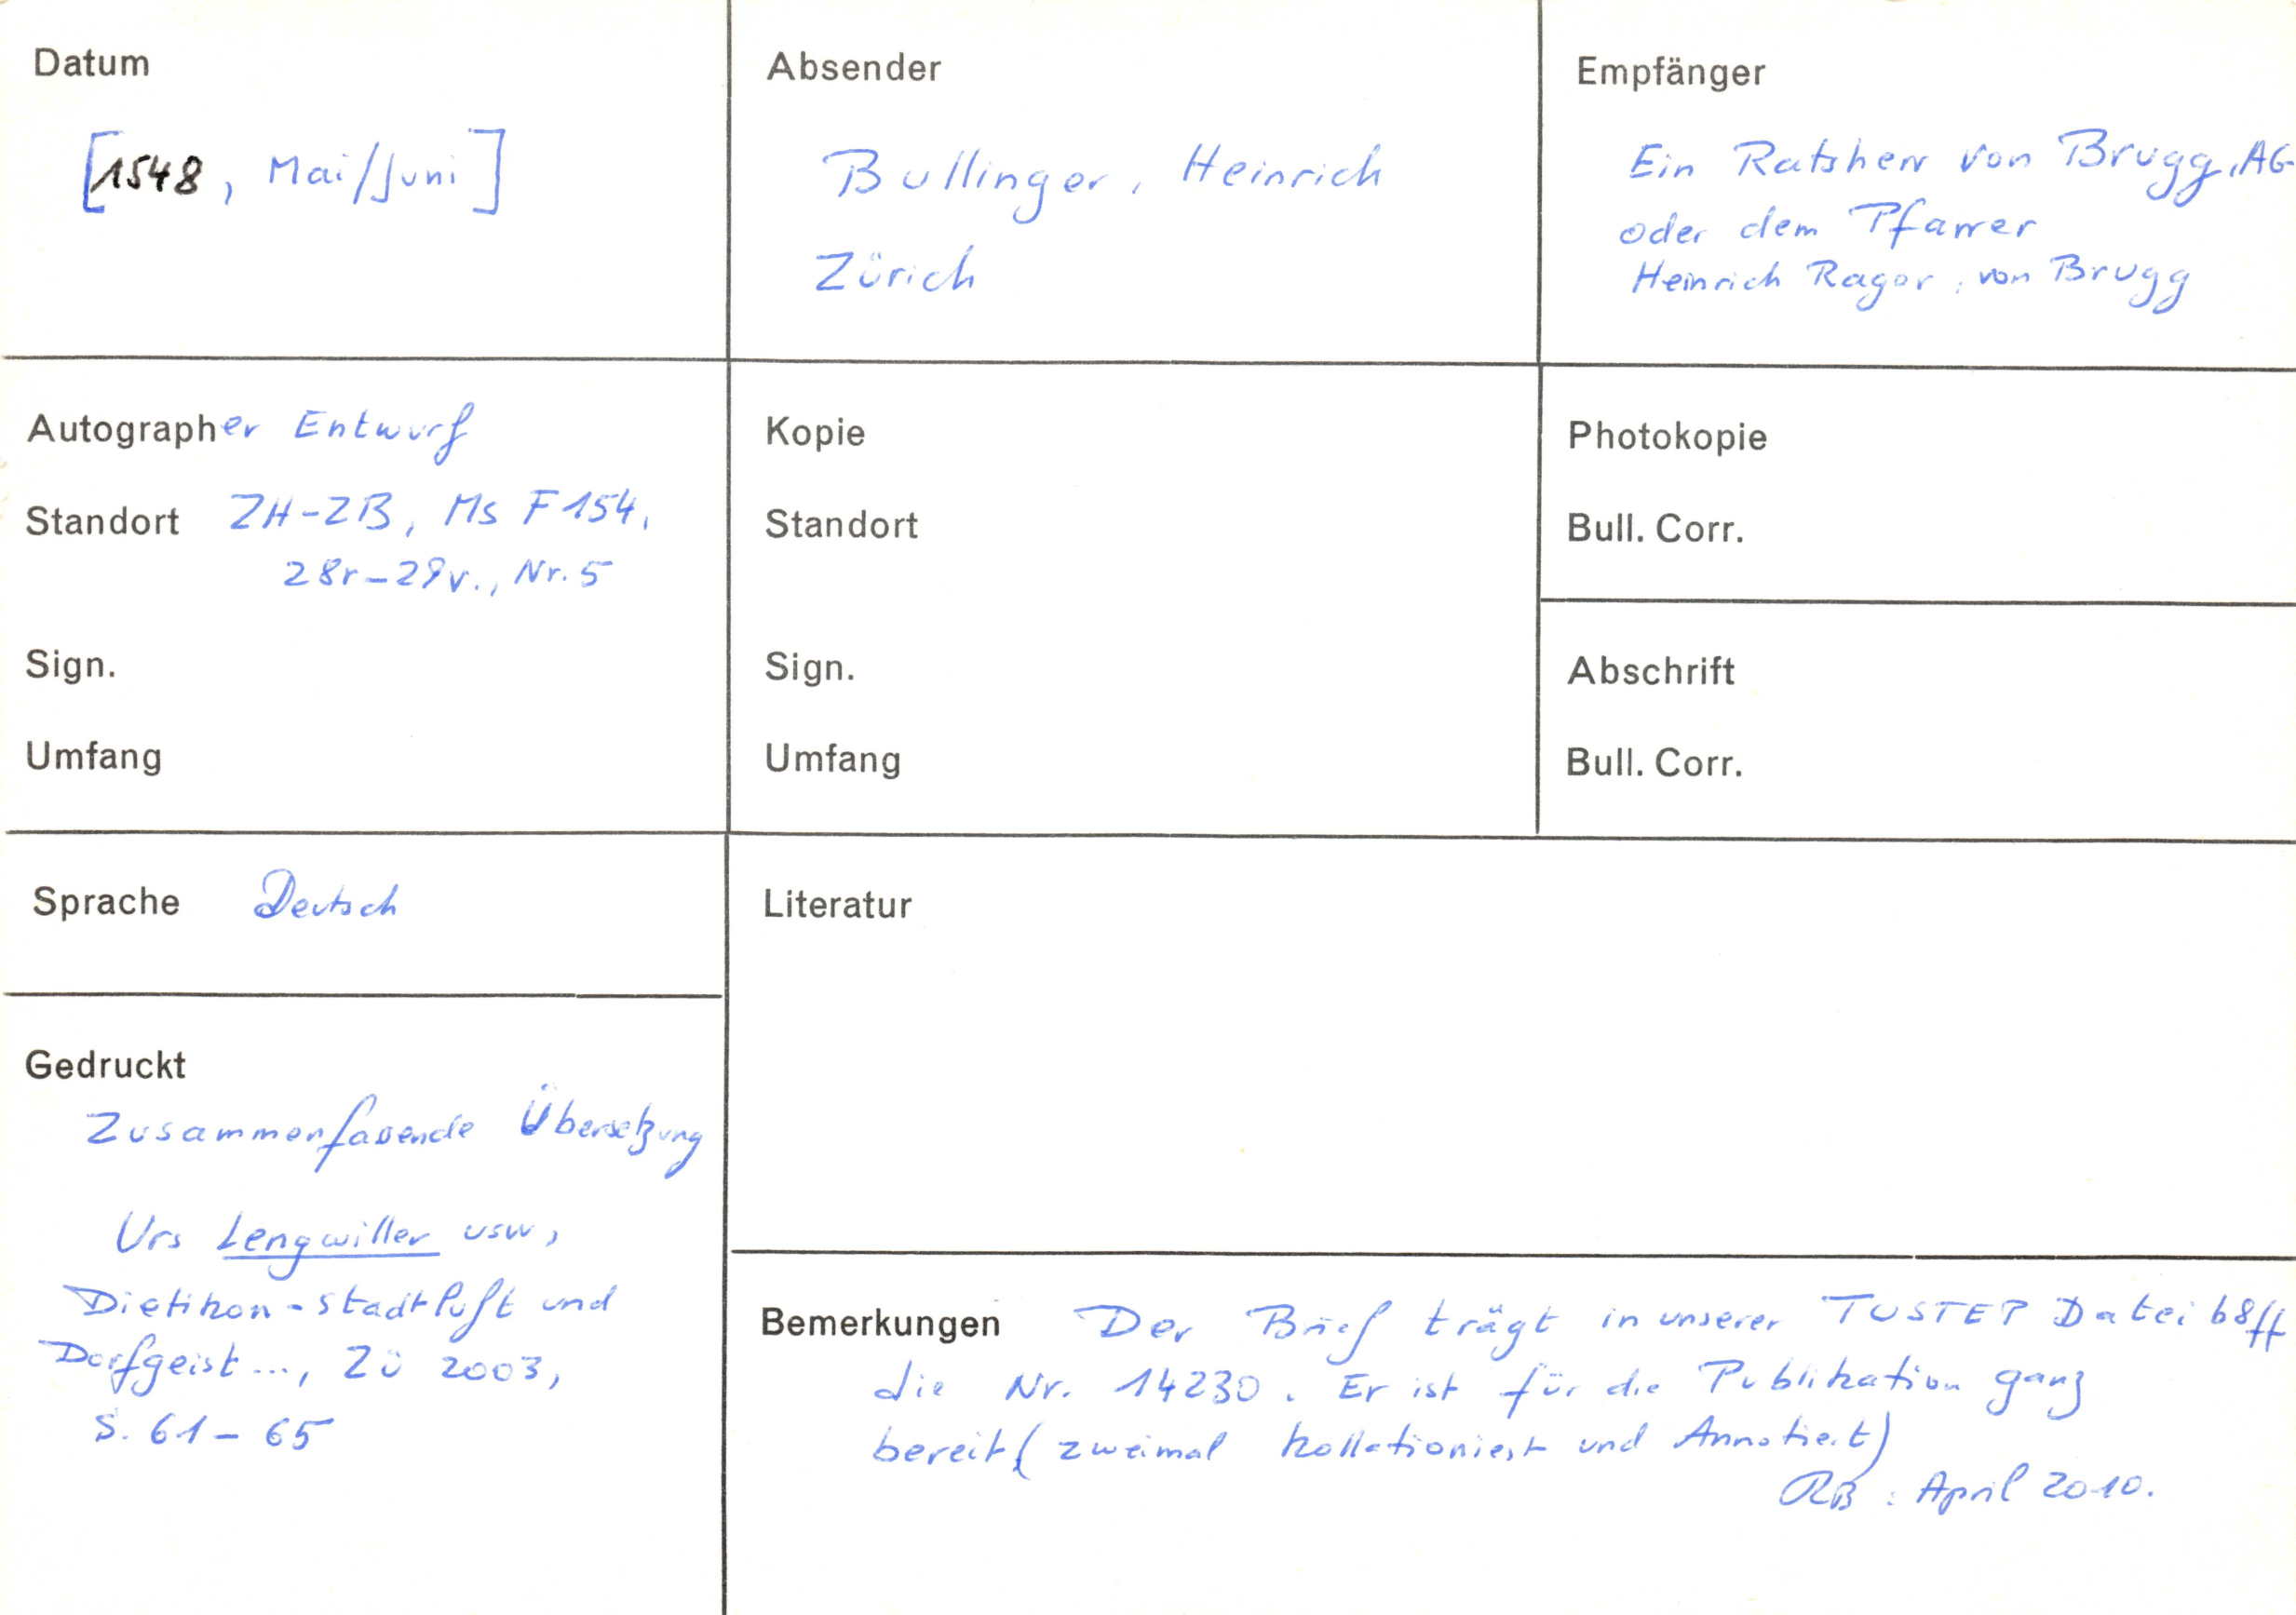 Datum
[1548, Mai/Juni]
Absender
Bullinger, Heinrich
Zürich
Empfänger
Ein Ratsherr von Brugg, AG
oder dem Pfarrer
Heinrich Ragor, von Brugg
Autographer Entwurf
Standort ZH-ZB, Ms F 154,
28r-29v., Nr. 5
Sign.
Umfang
Kopie
Standort
Sign.
Umfang
Photokopie
Bull. Corr.
Abschrift
Bull. Corr.
Sprache Deutsch
Literatur
Gedruckt
Zusammenfassende Übersetzung
Urs Lengwiller usw,
Dietikon - Stadtluft und
Dorfgeist ..., Zü 2003,
S. 61-65
Bemerkungen Der Brief trägt in unserer TUSTEP Datei b8ff
die Nr. 14230. Er ist für die Publikation ganz
bereit (zweimal kollationiert und Annotiert)
RB: April 2010.